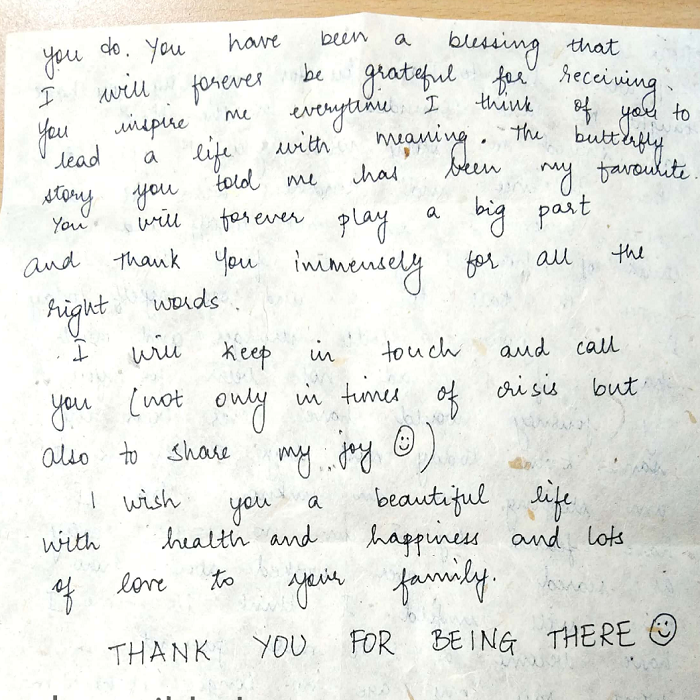 you do. You have been a blessing that
I will forever be grateful for receiving.
You inspire me everytime I think of you to
lead a life with meaning. The butterfly
story you told me has been my favourite.
You will forever play a big part
and thank you immensely for all the
right words.
I will keep in touch and call
you (not only in times of crisis but
also to share my joy ☺)
I wish you a beautiful life
with health and happiness and lots
of love to your family.
THANK YOU FOR BEING THERE ☺